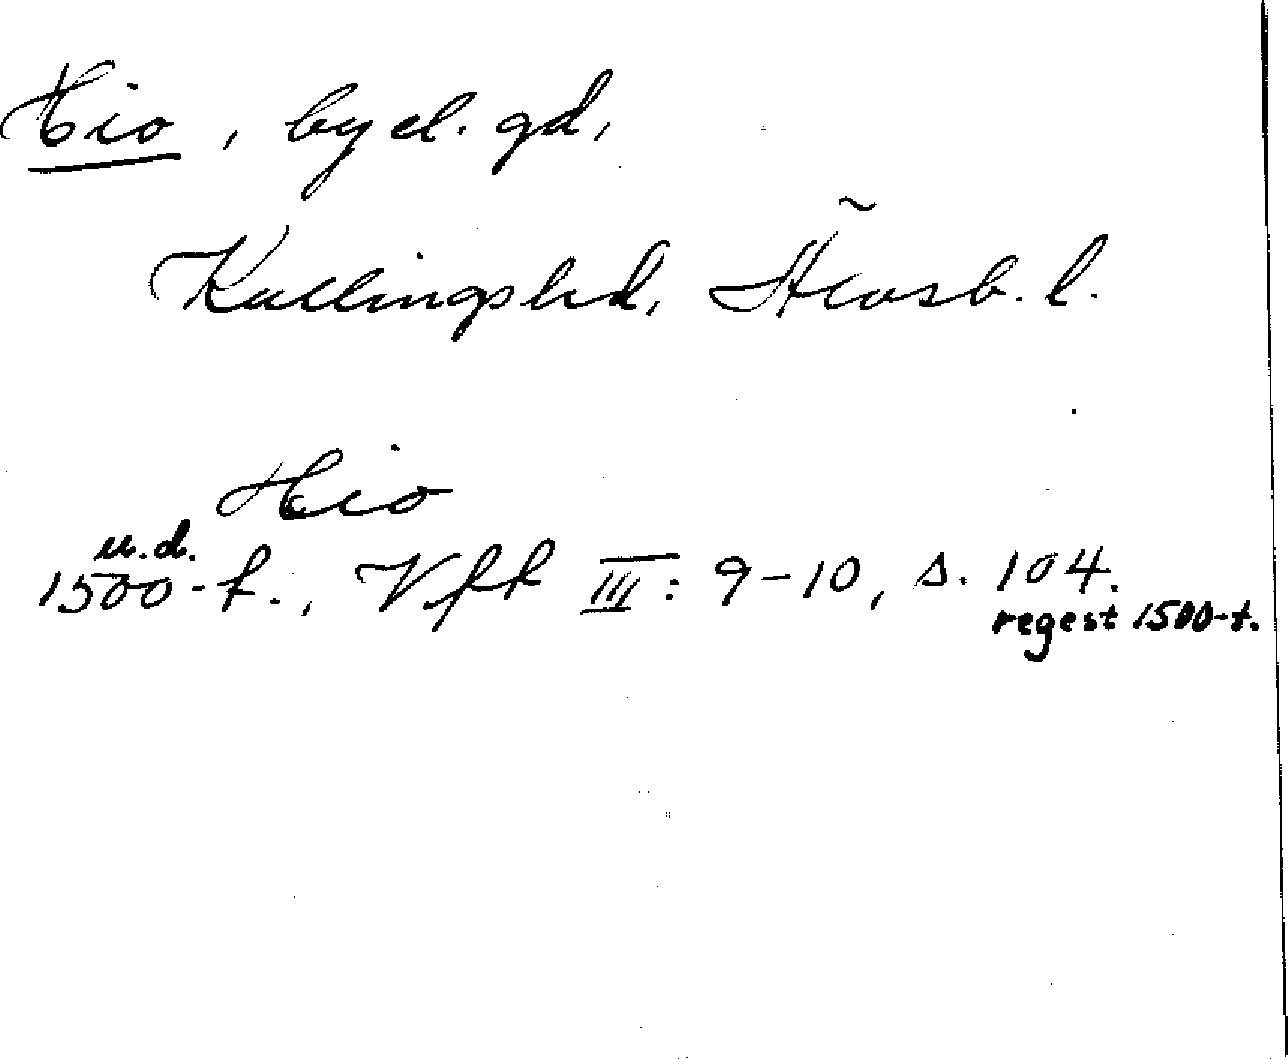 Hio, by el. gd,
Kullings hd, Älvsb. l.
Hio
u.d.
1500-t., Vft III: 9-10, s. 104.
regest 1500-t.